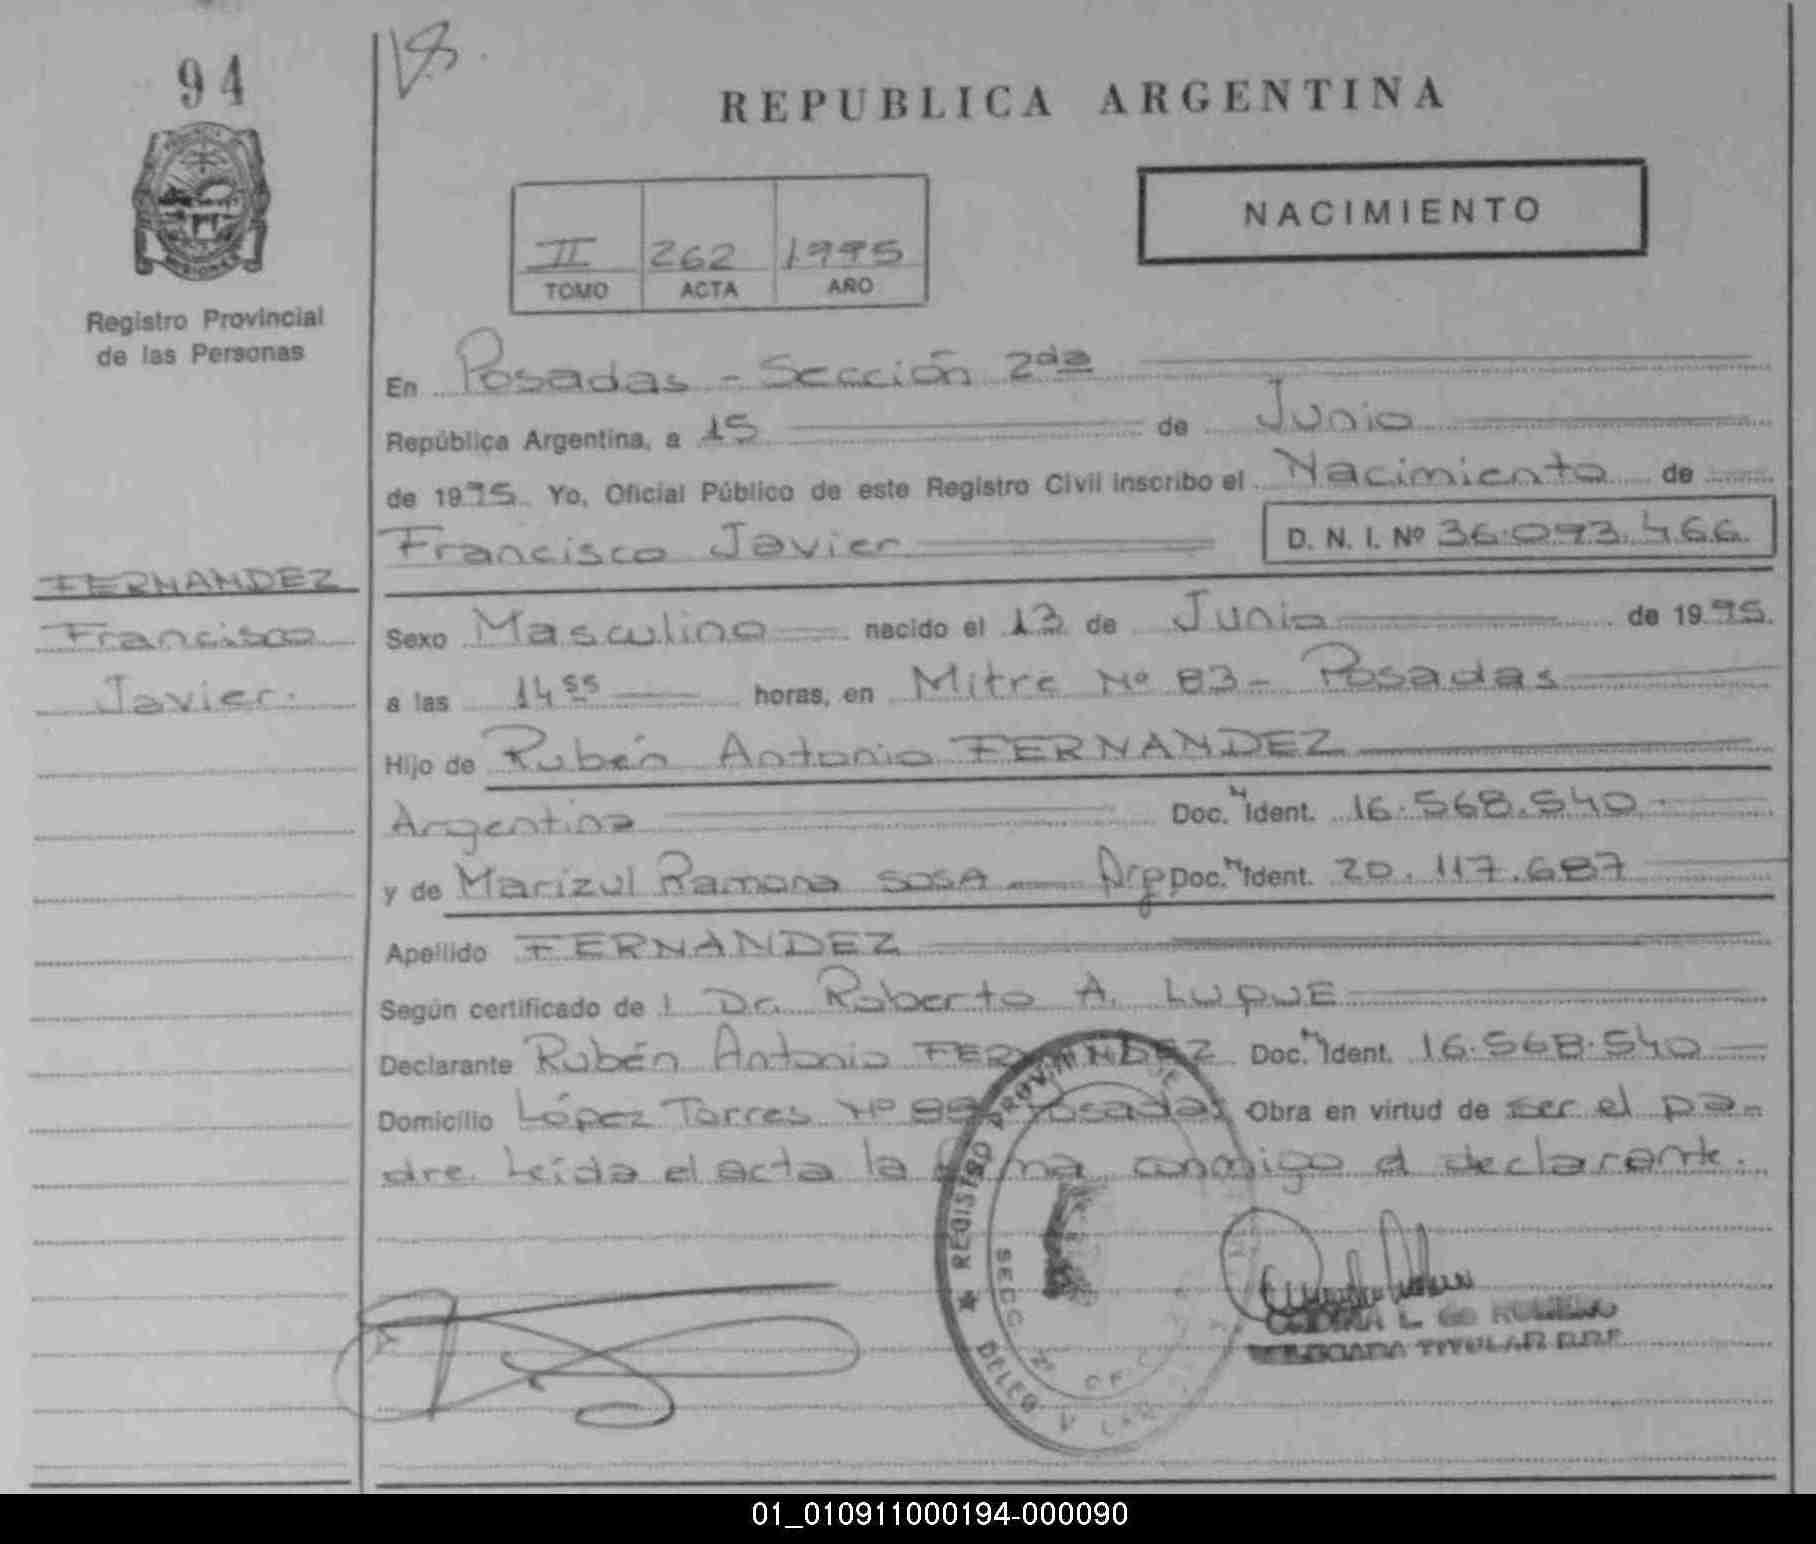 94
REPUBLICA ARGENTINA
NACIMIENTO
II 262 1995
TOMO ACTA AÑO
Registro Provincial
de las Personas
En Posadas - Sección 2da
República Argentina, a 15 de Junio
de 1995 Yo, Oficial Público de este Registro Civil inscribo el Nacimiento de
Francisco Javier D. N. I. Nº 36.093.466
FERNANDEZ
Francisco
Javier.
Sexo Masculino nacido el 13 de Junio de 1995.
a las 14 55 horas, en Mitre Nº 83 - Posadas
Hijo de Rubén Antonio FERNANDEZ
Argentina Doc. N Ident. 16.568.540
y de Marízul Ramona SOSA Arg Doc. N Ident. 20.117.687
Apellido FERNANDEZ
Según certificado de Dr. Roberto A. LUQUE
Declarante Rubén Antonio FERNANDEZ Doc. N Ident. 16.568.540
Domicilio López Torres Nº Posadas Obra en virtud de ser el pa-
dre. Leída el acta la firma conmigo el declarante.
REGISTRO PROVIN DE
SECC. 2º OF
DELEG
TITULAR
01_010911000194-000090